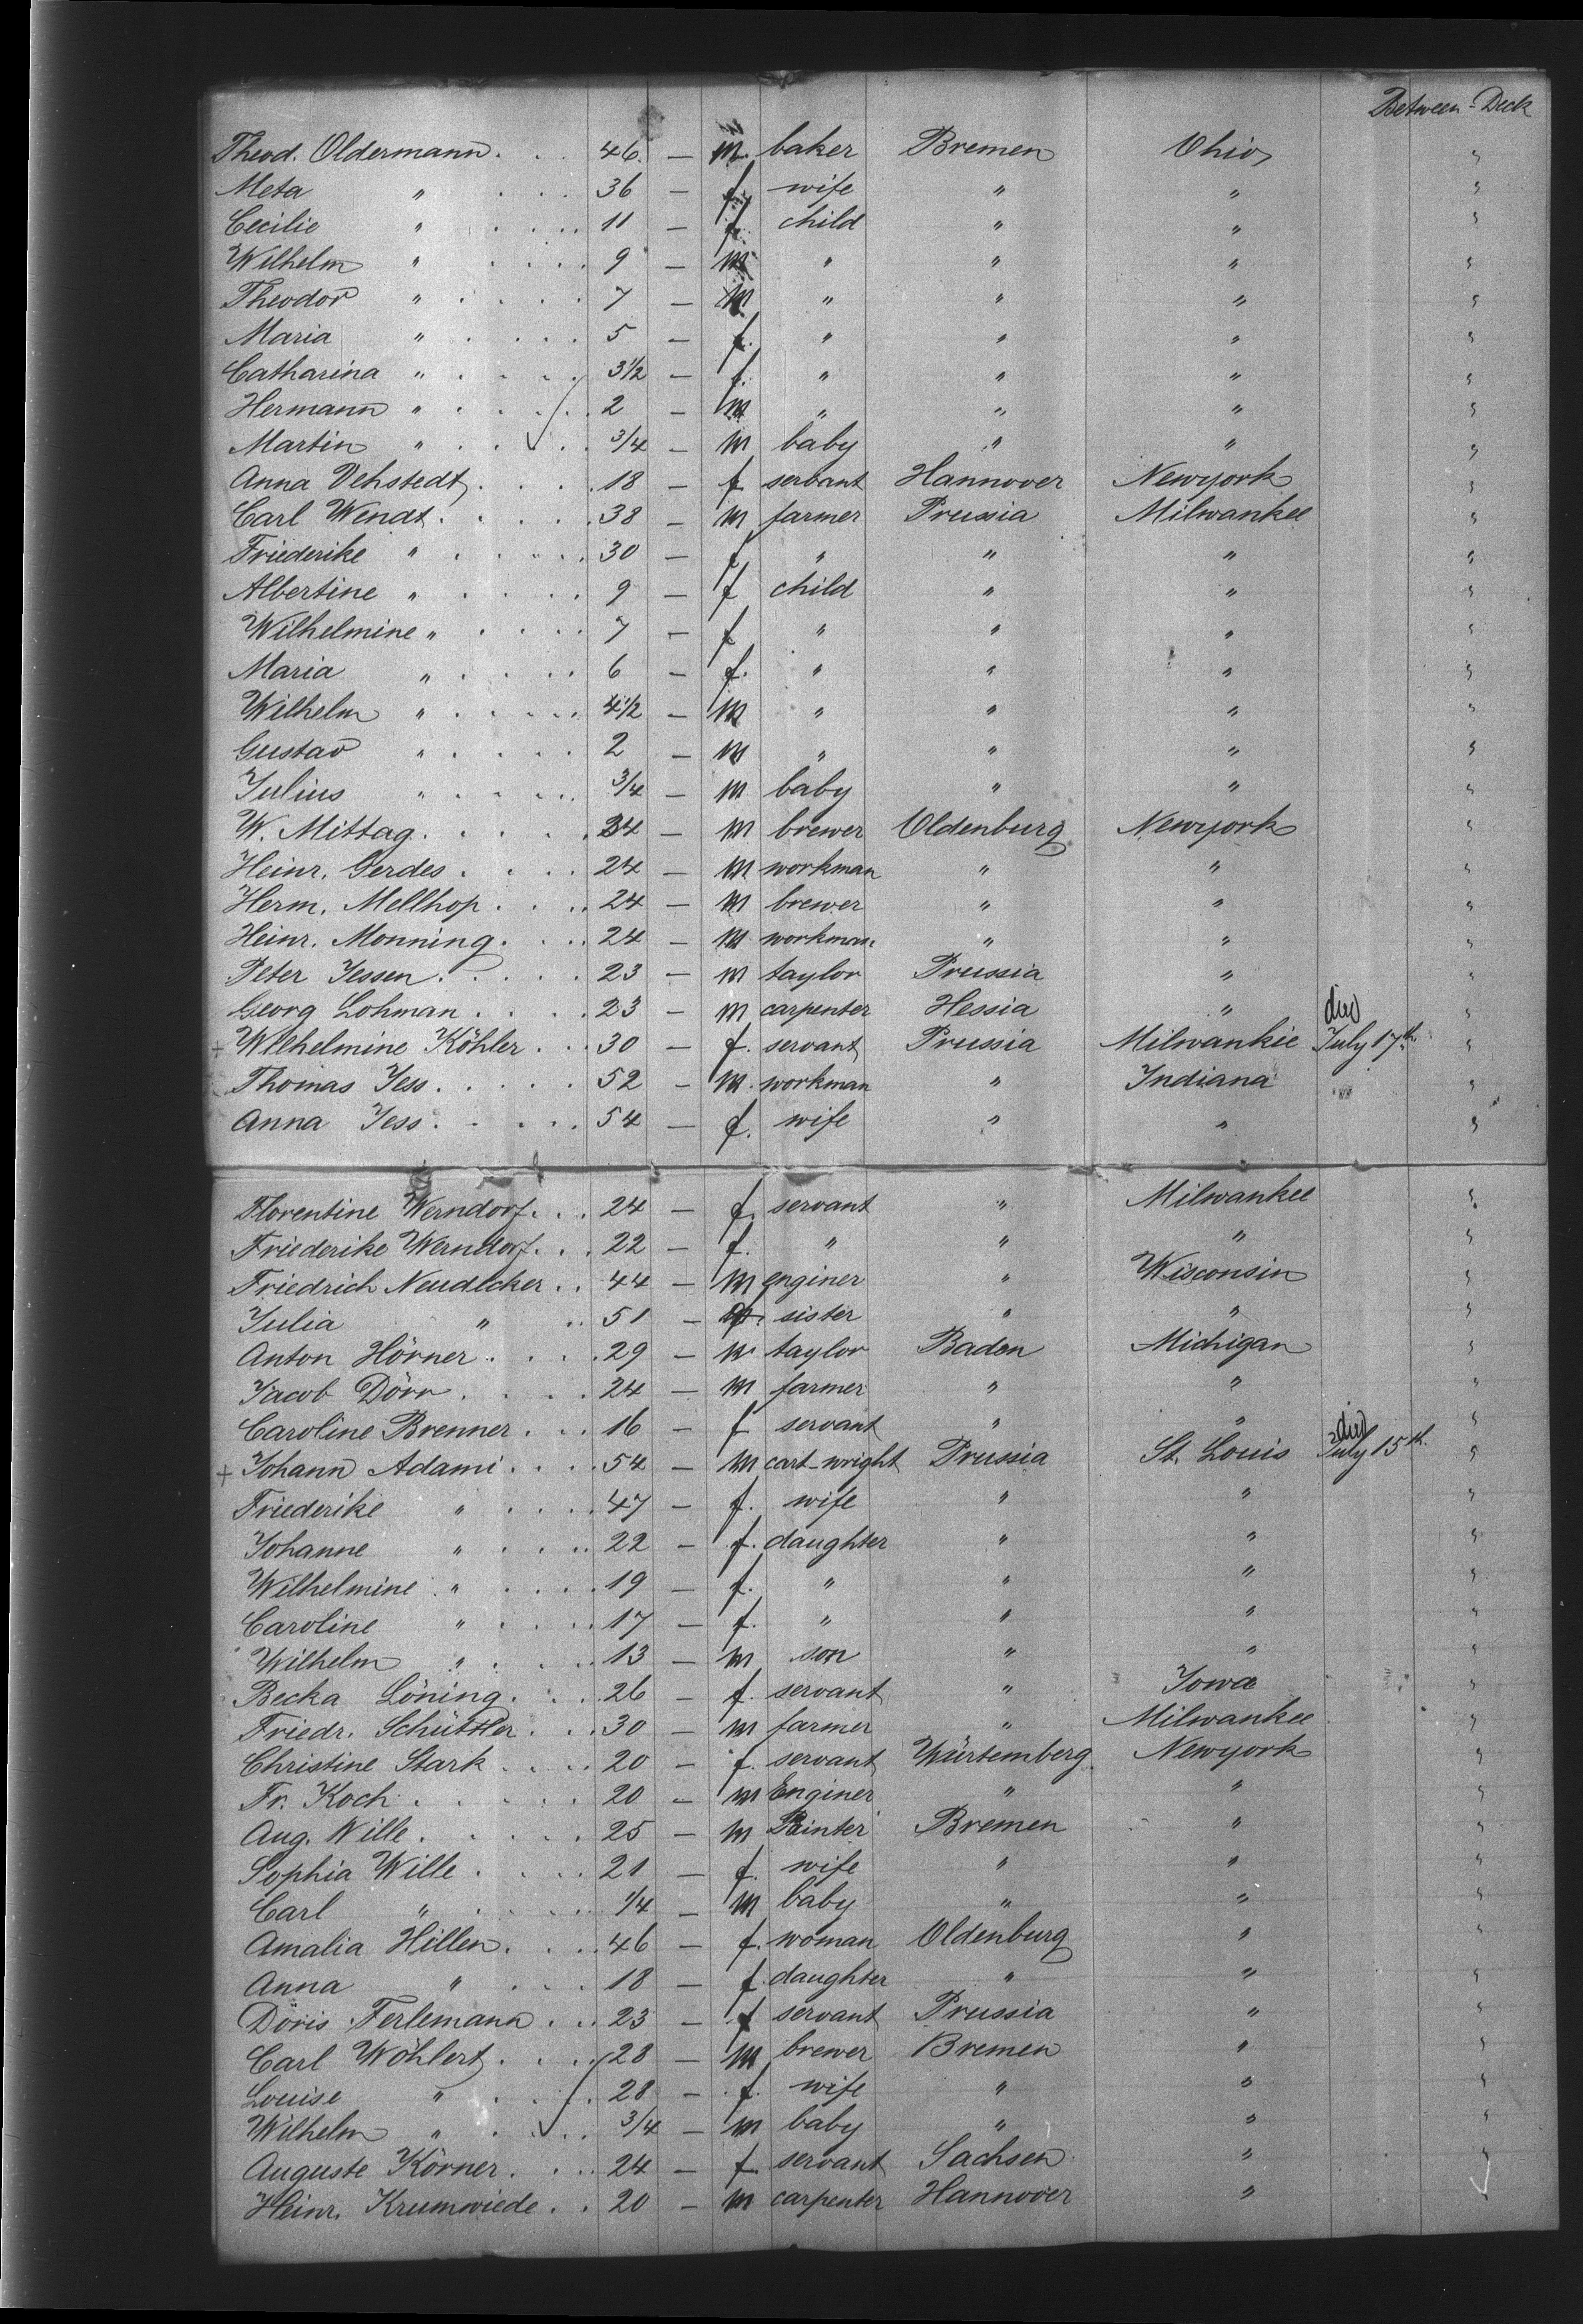 Between-Deck
Theod. Oldermann. . . 46. — m. baker Bremen Ohio "
Meta " . . . 36 — f. wife " " "
Cecilie " . . . . 11 — f. child " " "
Wilhelm " . . . . 9 — m " " " "
Theodor " . . . . . 7 — m " " " "
Maria " . . . . . 5 — f. " " " "
Catharina " . . . . . 3½ — f. " " " "
Hermann " . . . . . 2 — m " " " "
Martin " . . . . ¾ — m baby " " "
Anna Vehstedt . . . . 18 — f servant Hannover Newyork "
Carl Wendt . . . . . 38 — m farmer Prussia Milwankee "
Friederike " . . . . . 30 — f " " " "
Albertine " . . . . . 9 — f child " " "
Wilhelmine " . . . . 7 — f " " " "
Maria " . . . . . 6 — f. " " " "
Wilhelm " . . . . . 4½ — m " " " "
Gustav " . . . . . 2 — m " " " "
Julius " . . . . . ¾ — m baby " " "
W. Mittag . . . . . 34 — m brewer Oldenburg Newyork "
Heinr. Gerdes . . . . 24 — m workman " " "
Herm. Mellhop . . . . 24 — m brewer " " "
Heinr. Monning . . . . 24 — m workman " " "
Peter Jessen . . . . . 23 — m taylor Prussia " "
Georg Lohman . . . . 23 — m carpenter Hessia " "
+ Wilhelmine Köhler . . . 30 — f. servant Prussia Milwankie died July 17th "
Thomas Jess . . . . . 52 — m. workman " Indiana " "
Anna Jess . . . . . 54 — f. wife " " "
Florentine Werndorf . . . 24 — f. servant " Milwankee "
Friederike Werndorf . . . 22 — f. " " " "
Friedrich Neudecker . . 44 — m enginer " Wisconsin "
Julia " . . 51 — f. sister " " "
Anton Hörner . . . . 29 — m taylor Baden Michigan "
Jacob Dörr . . . . . 24 — m farmer " " "
Caroline Brenner . . . 16 — f servant " " "
+ Johann Adami . . . . 54 — m cart-wright Prussia St. Louis died July 15th. "
Friederike " . . . . 47 — f. wife " " "
Johanne " . . . . 22 — f. daughter " " "
Wilhelmine " . . . . 19 — f. " " " "
Caroline " . . . . 17 — f. " " " "
Wilhelm " . . . . 13 — m son " " "
Becka Löning . . . . 26 — f. servant " Iowa "
Friedr. Schüttler . . . 30 — m farmer " Milwankee "
Christine Stark . . . . 20 — f. servant Würtemberg Newyork "
Fr. Koch . . . . . 20 — m Enginer " " "
Aug. Wille . . . . . 25 — m Painter Bremen " "
Sophia Wille . . . . 21 — f. wife " " "
Carl " . . . . ¼ — m baby " " "
Amalia Hillen . . . . 46 — f. woman Oldenburg " "
Anna " . . . 18 — f. daughter " " "
Döris Ferlemann . . . 23 — f servant Prussia " "
Carl Wöhlert . . . . 28 — m brewer Bremen " "
Louise " . . . . 28 — f. wife " " "
Wilhelm " . . . . ¾ — m baby " " "
Auguste Körner . . . . 24 — f servant Sachsen " "
Heinr. Krumwiede . . 20 — m carpenter Hannover " "